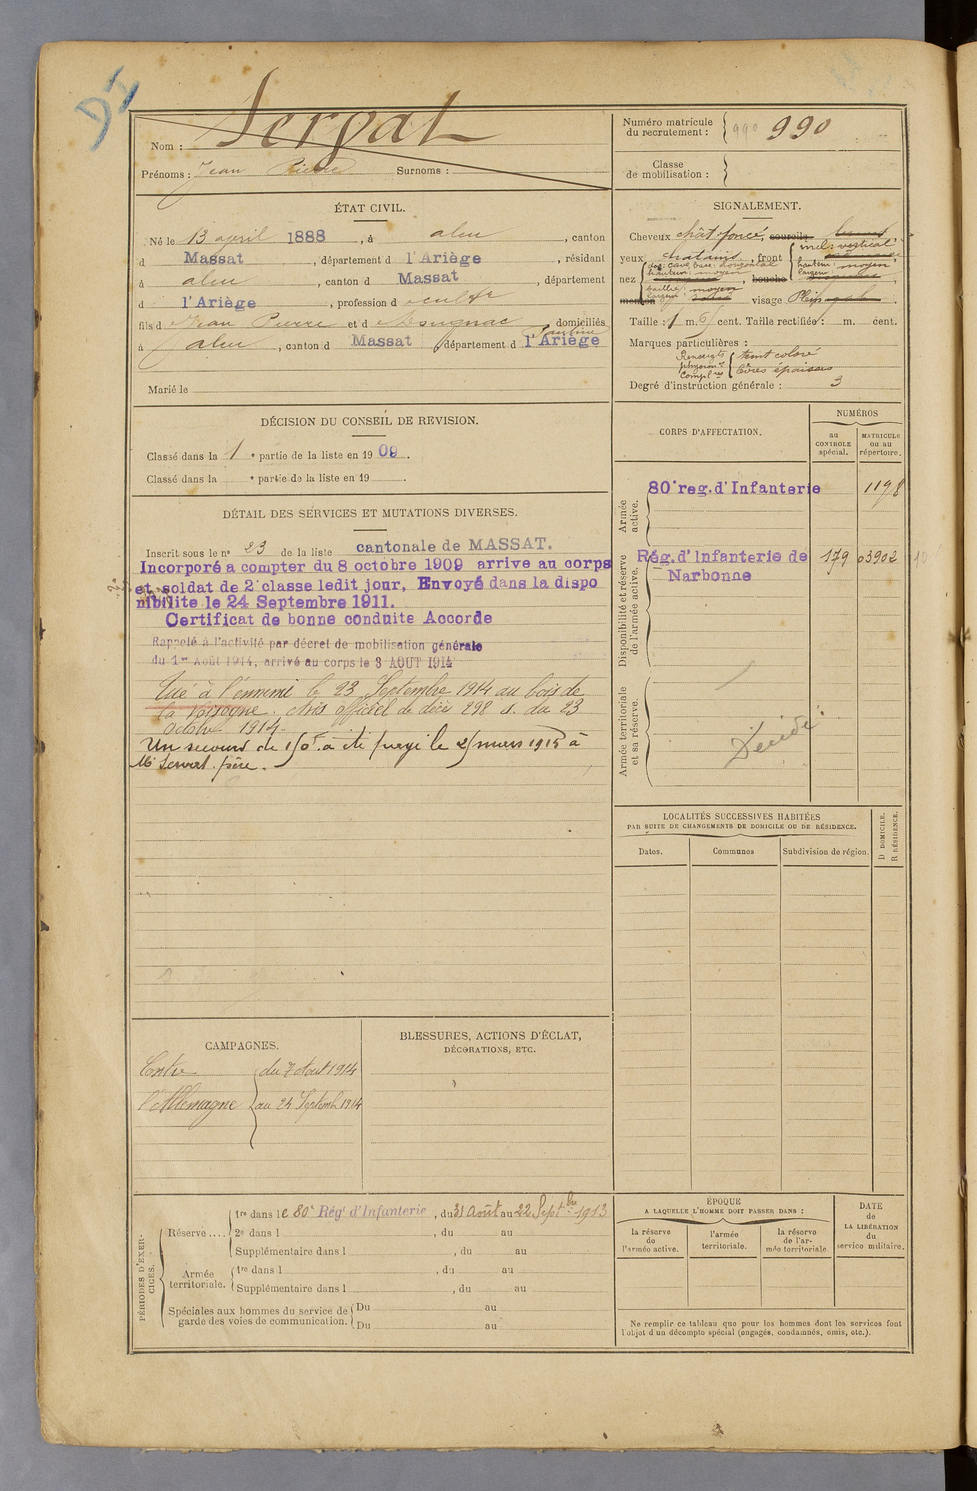 DI
Nom : Servat
Prénoms : Jean Pierre Surnoms :
Numéro matricule du recrutement : 990 990
Classe de mobilisation :
ÉTAT CIVIL.
Né le 13 april 1888, à alu, canton
d Massat, département d l'Ariège, résidant
à alu, canton d Massat, département
d l'Ariège, profession d cultr
fils d Jean Pierre et d Pauline domiciliés
à alu, canton d Massat, département d l'Ariège
Marié le
SIGNALEMENT.
Cheveux chât foncé, sourcils
yeux chatains, front incl: vertical
hauteur: moyen
largeur: moyen
nez dos: cave base: horizontal
hauteur: moyen
bouche
saillie: moyen
largeur: moyen
menton visage Plein
Taille : 1 m. 65 cent. Taille rectifiée : m. cent.
Marques particulières :
Renseigts physionom. compl.res teint coloré
lèvres épaisses
Degré d'instruction générale : 3
DÉCISION DU CONSEIL DE REVISION.
Classé dans la 1e partie de la liste en 1909.
Classé dans la e partie de la liste en 19
DÉTAIL DES SERVICES ET MUTATIONS DIVERSES.
Inscrit sous le n° 23 de la liste cantonale de MASSAT.
Incorporé a compter du 8 octobre 1909 arrive au corps
et soldat de 2e classe ledit jour, Envoyé dans la dispo
nibilite le 24 Septembre 1911.
Certificat de bonne conduite Accorde
Rappelé à l'activité par décret de mobilisation générale
du 1er Août 1914, arrivé au corps le 3 AOUT 1914
Tué à l'ennemi le 23 Septembre 1914 au bois de
la Vossogne. Avis officiel de décès 298 d. du 23
Octobre 1914.
Un secours de 150f a été payé le 25 mars 1915 à
Mr Servat père.
CORPS D'AFFECTATION.
NUMÉROS
au CONTROLE spécial.
MATRICULE ou au répertoire.
Armée active.
80e reg. d'Infanterie 1198
Disponibilité et réserve de l'armée active.
Rég. d'Infanterie de Narbonne 179 03902
Armée territoriale et sa réserve.
Décédé.
LOCALITÉS SUCCESSIVES HABITÉES
PAR SUITE DE CHANGEMENTS DE DOMICILE OU DE RÉSIDENCE.
Dates. Communes Subdivision de région. D DOMICILE. R RÉSIDENCE.
CAMPAGNES.
Contre l'Allemagne
du 7 Aout 1914
au 24 Septemb 1914
BLESSURES, ACTIONS D'ÉCLAT,
DÉCORATIONS, ETC.
PÉRIODES D'EXERCICES.
Réserve ....
1re dans le 80e Régt d'Infanterie, du 31 Août au 22 Septbre 1913
2e dans l , du au
Supplémentaire dans l , du au
Armée territoriale.
1re dans l , du au
Supplémentaire dans l , du au
Spéciales aux hommes du service de garde des voies de communication.
Du au
Du au
ÉPOQUE
A LAQUELLE L'HOMME DOIT PASSER DANS :
la réserve de l'armée active.
l'armée territoriale.
la réserve de l'armée territoriale.
DATE de LA LIBÉRATION du service militaire.
Ne remplir ce tableau que pour les hommes dont les services font
l'objet d'un décompte spécial (engagés, condamnés, omis, etc.).